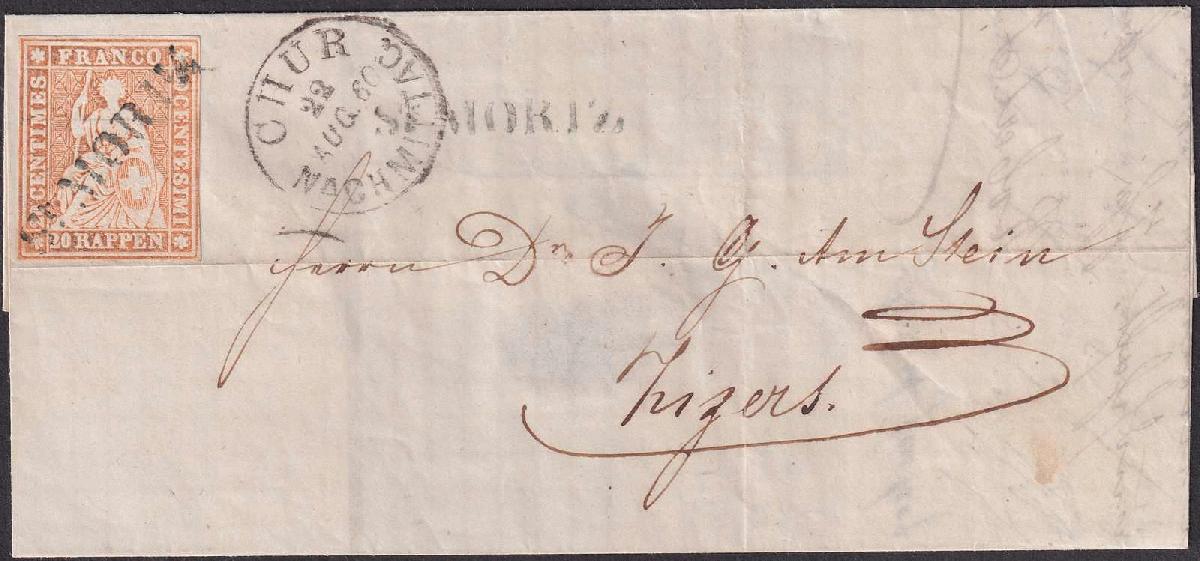 FRANCO
CENTIMES
CENTESIMI
20 RAPPEN
ST. MORITZ
CHUR
22
AUG. 60
NACHMITTAG
ST. MORITZ
Herrn Dr J. G. Am Stein
Zizers.